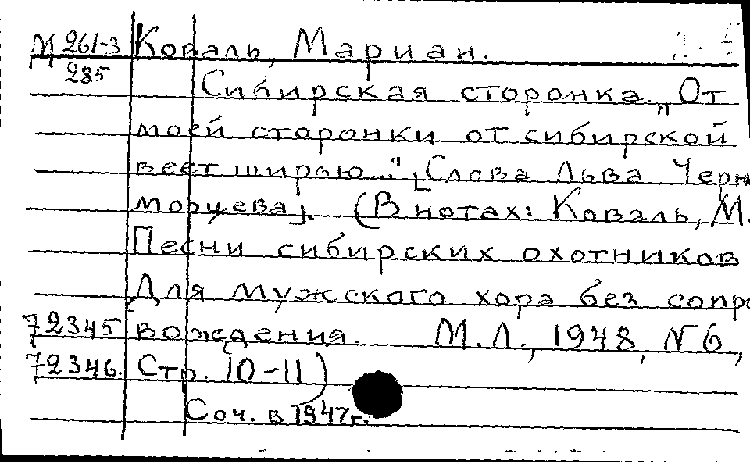 М 261-3 Коваль, Мариан.
285
Сибирская сторонка. „От
моей сторонки от сибирской
веет ширью..." [Слова Льва Черно
морцева]. (В нотах: Коваль, М.
Песни сибирских охотников
Для мужского хора без сопро
72345 вождения. М.Л., 1948, N6,
72346. Стр. 10-11)
Соч. в 1947г.